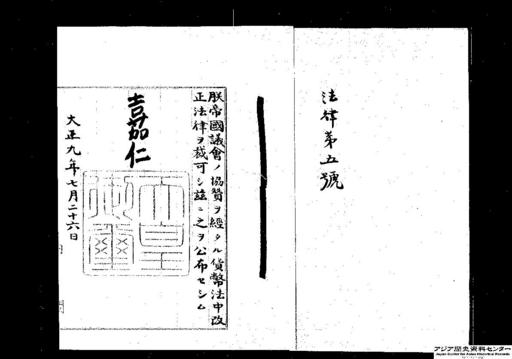 法律第五號
朕帝國議會ノ協贊ヲ經タル貨幣法中改
正法律ヲ裁可シ茲ニ之ヲ公布セシム
嘉仁
天皇御璽
大正九年七月二十六日
アジア歴史資料センター
Japan Center for Asian Historical Records